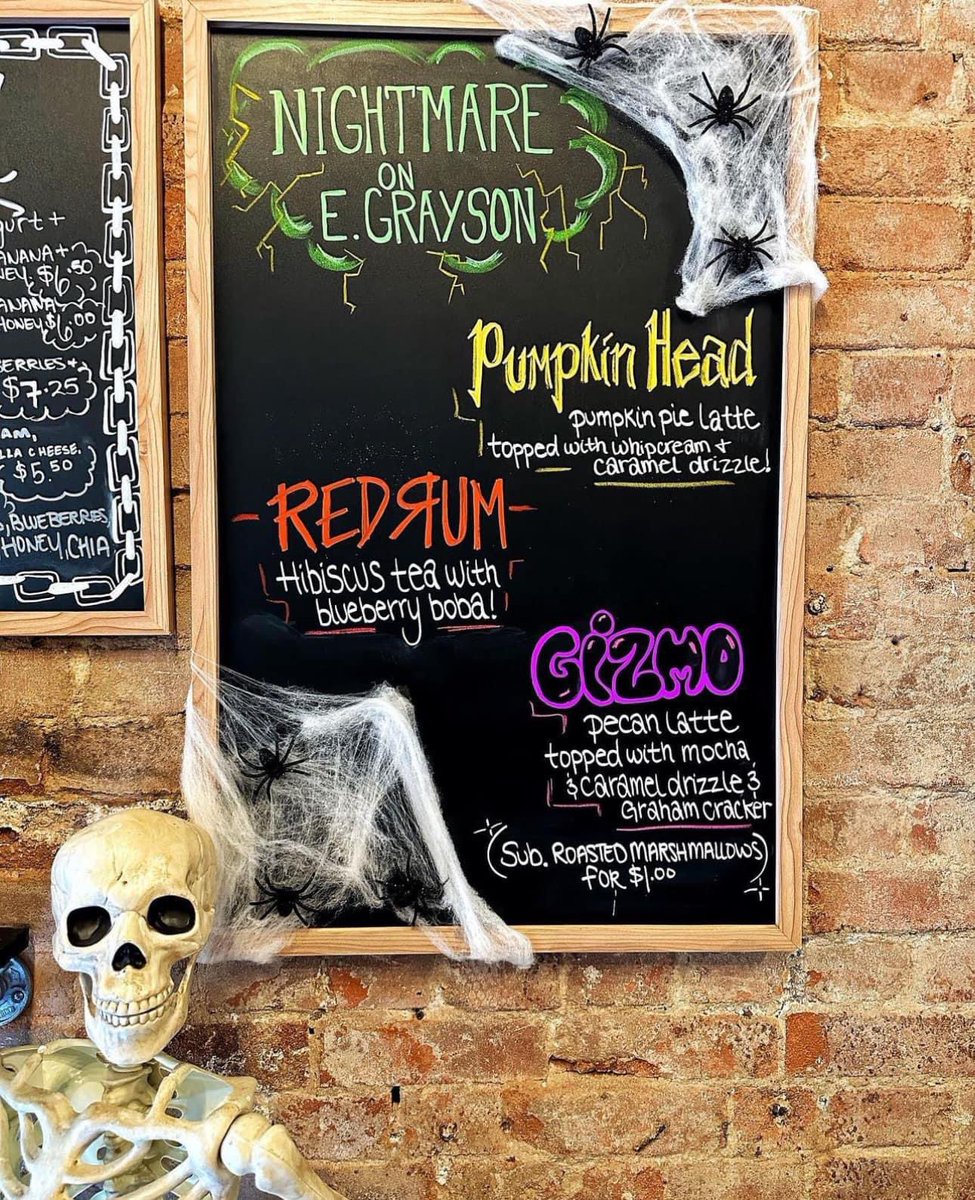 NIGHTMARE
ON
E. GRAYSON
PUMPKIN HEAD
pumpkin pie latte
topped with whipcream +
caramel drizzle!
-REDЯUM-
Hibiscus tea with
blueberry boba!
GIZMO
pecan latte
topped with mocha
& caramel drizzle &
Graham cracker
(SUB. ROASTED MARSHMALLOWS)
FOR $1.00
+
$6.50
HONEY $6.00
$7.25
$5.50
BLUEBERRIES,
HONEY, CHIA